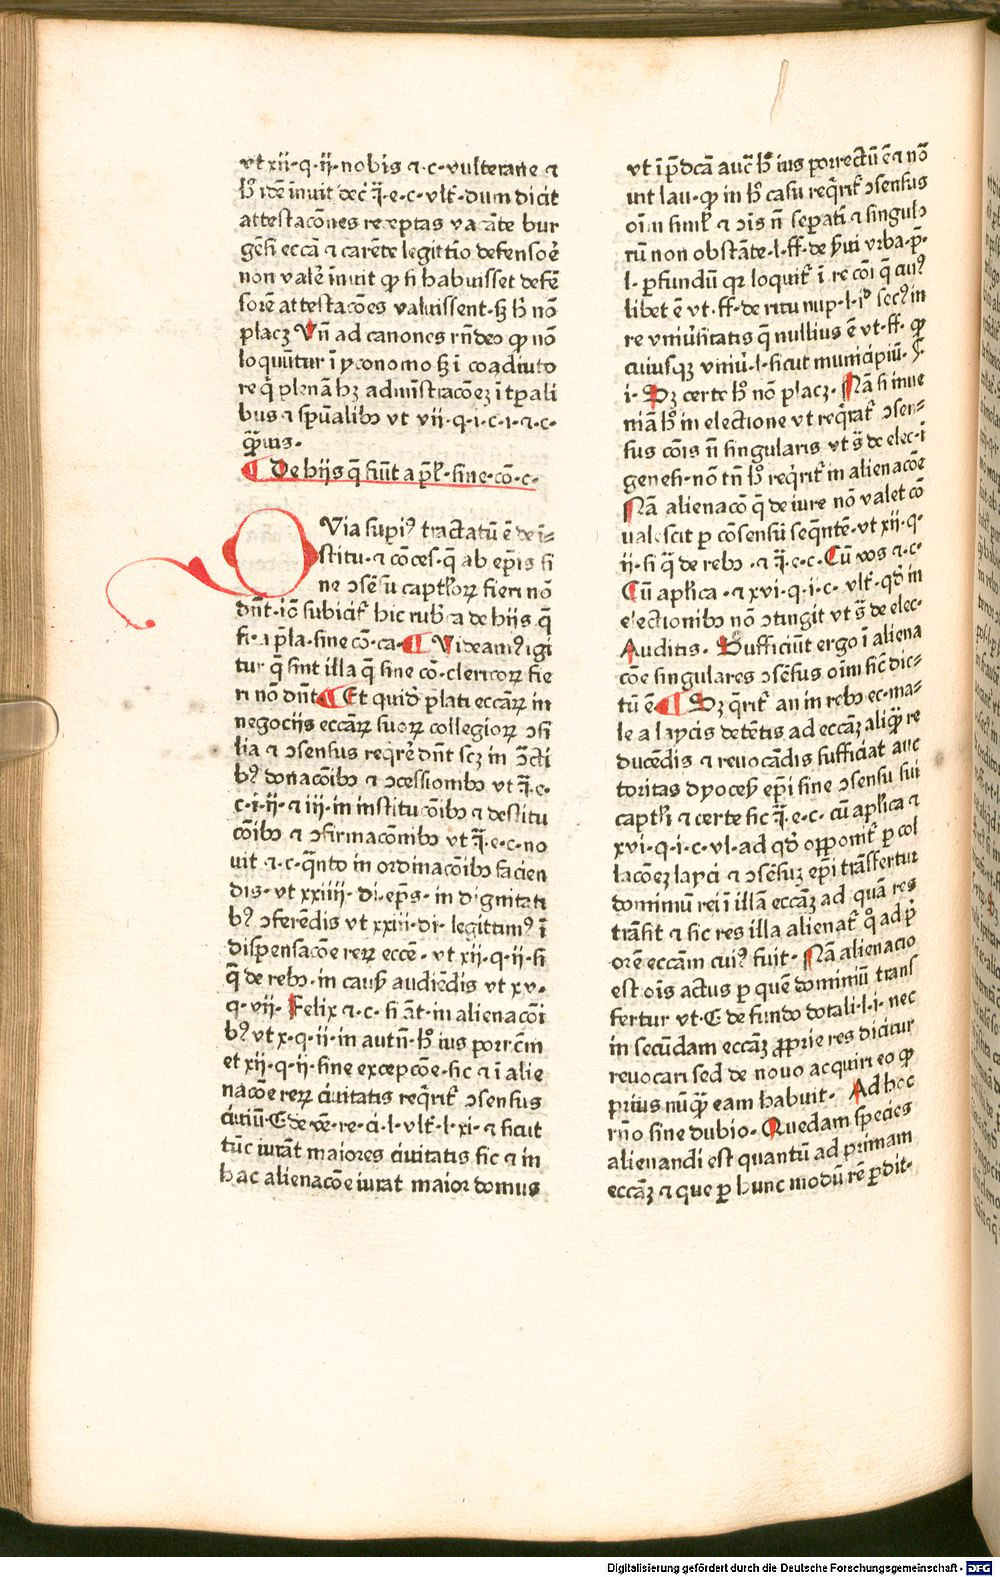 vt xii·q·ij·nobis ⁊·c·vulterane ⁊
hͦ idē īnuit dec̄ q̄·e·c·vlt̄·dum dicit
attestacōnes receptas vacāte bur
gēsi eccā ⁊ carēte legittīo defensoē
non valē īnuit ꝙ si habuisset defē
sorē attestacōes valuissent·sꝫ hͦ nō
placꝫ Vn̄ ad canones rn̄deo ꝙ nō
loquūtur ī yconomo sꝫ ī coadiuto
re q̄ plenā hꝫ admīstracōeꝫ ī tꝑali
bus ⁊ spūalibꝰ vt vii·q·i·c·i·⁊·c·
q̄ꝫuis·
¶ De hijs q̄ fiūt a p̄l̄·sine·cō·c·
QVia supiꝰ tractatū ē de ī-
stitu·⁊ cōces·q̄ ab ep̄is si
ne ↄsēsu captl̄oꝝ fieri nō
dn̄t·iō subicit̄ hic rub̄ca de hijs q̄
fi·a p̄la·sine cō·ca·¶ Videamꝰ igi
tur q̄ sint illa q̄ sine cō·clericoꝝ fie
ri nō dn̄t ¶ Et quidē p̄lati eccāꝝ in
negocijs eccāꝝ suoꝝ collegioꝝ ↄsi
lia ⁊ ↄsensus req̄rē dn̄t scꝫ in ↄc̄ti
bꝰ donacōibꝰ ⁊ ↄcessionibꝰ vt q̄·e·
c·i·ij·⁊ iii·in institucōibꝰ ⁊ destitu
cōibꝰ ⁊ ↄfirmacōnibꝰ vt q̄·e·c·no
uit ·⁊·c·q̄nto in ordinacōibꝰ facien
dis·vt xxiiii·di·ep̄s·in dignitati
bꝰ ↄferēdis vt xxiii·di·legittimꝰ ī
dispensacōe reꝝ eccē·vt xii·q·ij·si
q̄ de rebꝰ·in causis audiēdis vt xv·
q·vij·Felix ⁊·c·si āt·in alienacōi
bꝰ vt x·q·ij·in autn̄·hͦ ius porrēm
et xij·q·ij·sine excepcōe·sic ⁊ ī alie
nacōe reꝝ ciuitatis req̄rit̄ ↄsensus
ciuiū·C·de vē·re·ci·l·vlt̄·l·xi·⁊ sicut
tūc iurāt maiores ciuitatis sic ⁊ in
hac alienacōe iurat maior domus
vt ī p̄dcā auc̄ hͦ ius porrectū ē ⁊ nō
iur̄ lau·ꝙ in hͦ casu req̄rit̄ ↄsensus
oīm simil̄ ⁊ ↄīs n̄ sepati̅ ⁊ singulo
rū non obstāte·l·ff·de p̄ui vrba·p̄·
l·per fundū qꝛ loquit̄ ī re cōi q̄ cuiꝰ
libet ē vt·ff·de ritu nup·l·i° secꝰ in
re vniūsitatis q̄ nullius ē vt·ff·ꝙ
cuiusqꝫ vniū·l·sicut municipiū·§·
i·Sꝫ certe hͦ nō placꝫ·Nā si inue
niā hͦ in electione vt req̄rat̄ ↄsen-
sus cōis n̄ singularis vt s̄ de elec·ī
genesi·nō tn̄ hͦ req̄rit̄ in alienacōe
Nā alienacō q̄ de iure nō valet cō
ualescit p cōsensū seq̄ntē·vt xii·q·
ij·si q̄ de rebꝰ·⁊ q̄·e·c·Cū vos ⁊·c·
Cū apl̄ica·⁊ xvi·q·i·c·vlt̄·qd̄ in
electionibꝰ nō ↄtingit vt s̄ de elec·
Auditis·Sufficiūt ergo ī aliena
cōe singulares ↄsēsus oīm sic̄ dic-
tū ē ¶ Sꝫ q̄rit̄ an in rebꝰ ec·ma-
le a laycis detētis ad eccāꝫ aliq̄ꝫ re
ducēdis ⁊ reuocādis sufficiat auc
toritas dyoces̄ ep̄i sine ↄsensu sui
captl̄i ⁊ certe sic q̄·e·c·cū apl̄ica ⁊
xvi·q·i·c·vl·ad qd̄ opponit̄ p col
lacōeꝫ layci ⁊ ↄsēsuꝫ ep̄i trāsfertur
dominiū rei ī illā eccāꝫ ad quā res
trāsit ⁊ sic res illa alienat̄ q° ad p̄
orē eccām cuiꝰ fuit·Nā alienacio
est oīs actus p quē dominiū trans
fertur vt·C de fundo dotali·l·i·nec
in secūdam eccāꝫ ꝓprie res dicitur
reuocari sed de nouo acquiri eo ꝙ
prius nūq̄ꝫ eam habuit·Ad hoc
rn̄o sine dubio·Quedam species
alienandi est quantū ad primam
eccāꝫ ⁊ que p hunc modū rē pdit·
Digitalisierung gefördert durch die Deutsche Forschungsgemeinschaft - DFG